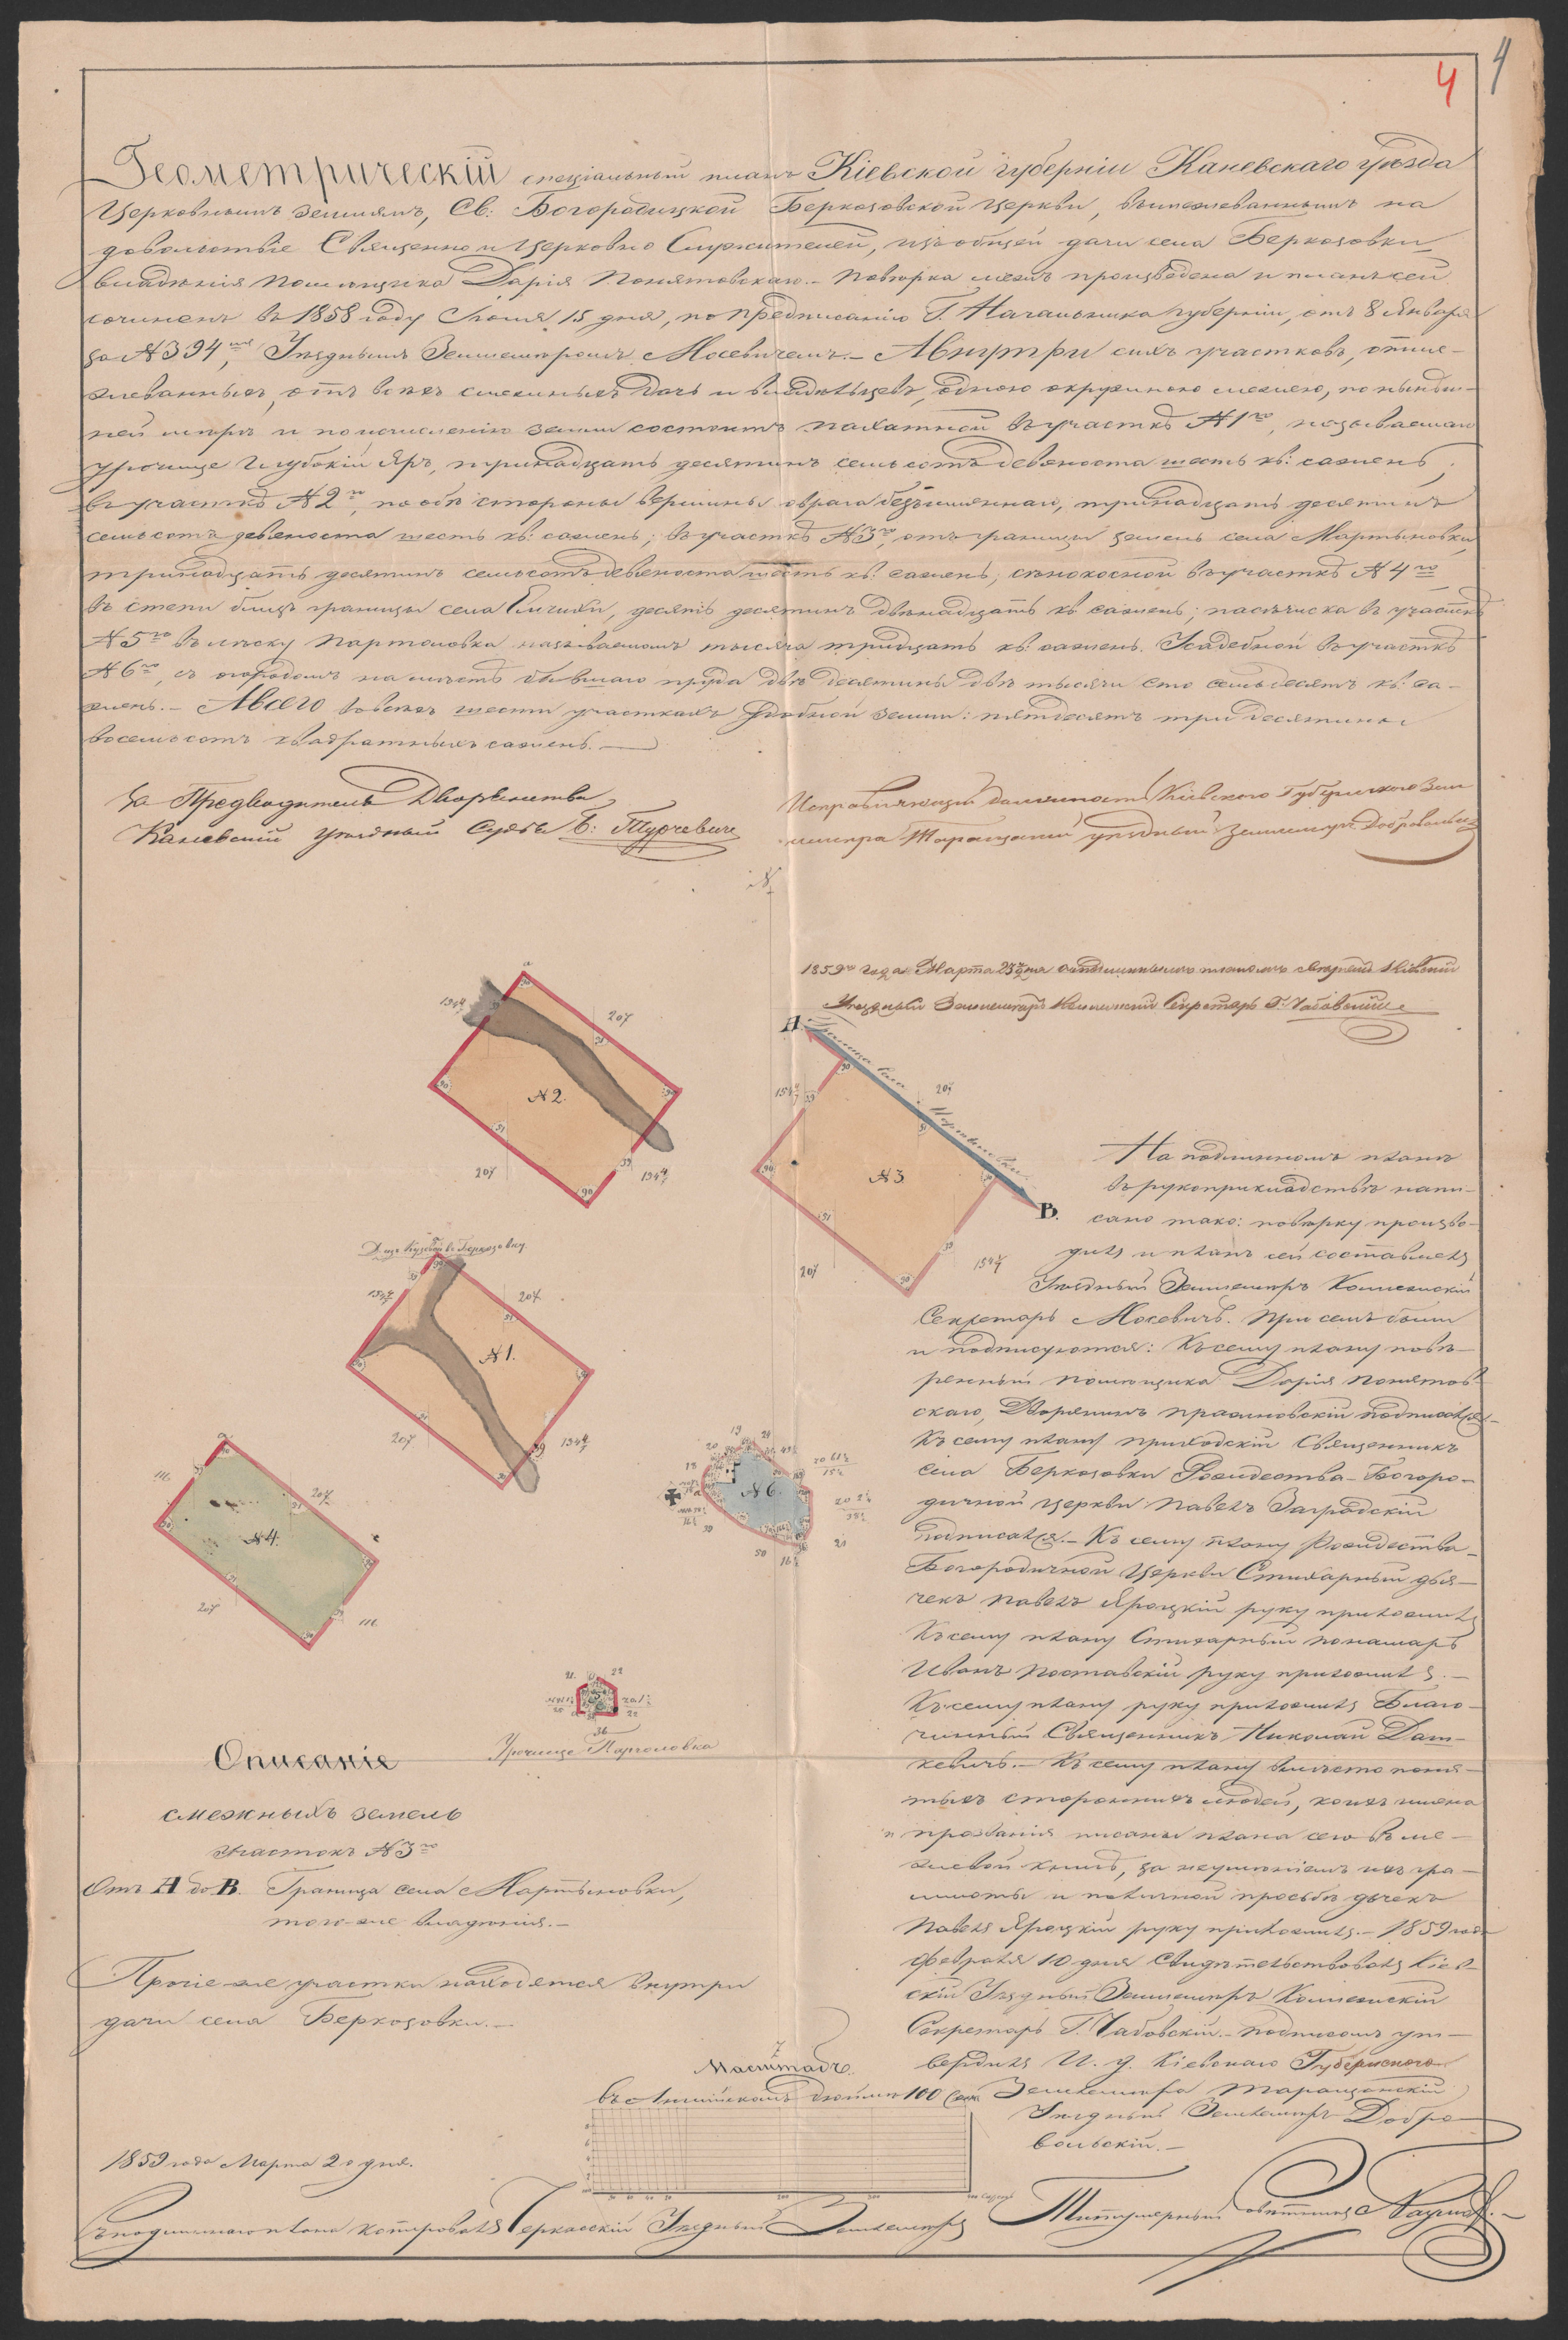 4
4
Геометрическій спеціальный планъ Кіевской губерніи Каневскаго уѣзда
Церковнымъ землямъ, Св: Богородицкой Беркозовской церкви, вымежеваннымъ на
довольствіе Священно и Церковно Служителей, изъ общей дачи села Беркозовки
владѣнія помѣщика Дарія Понятовскаго.- Повѣрка межъ произведена и планъ сей
сочиненъ въ 1858 году Іюля 15 дня, по предписанію Г. Начальника губерніи, отъ 8 Января
за № 394, Уѣзднымъ Землемѣромъ Мосевичемъ.- А внутри сихъ участковъ, отме-
жеванныхъ, отъ всѣхъ смежныхъ дачъ и владѣльцевъ, одною окружною межею, по нынѣш-
ней мѣрѣ и по исчисленію земли состоитъ пахатной въ участкѣ № 1го, называемая
урочище Глубокій Яръ, тринадцать десятинъ семьсотъ девяноста шесть кв: сажень;
въ участкѣ № 2го, по обѣ стороны вершины оврага безъимяннаго, тринадцать десятинъ
семьсотъ девяноста шесть кв: сажень; въ участкѣ № 3го, отъ границы земель села Мартыновки,
тринадцать десятинъ семьсотъ девяноста шесть кв: сажень; сѣнокосной въ участкѣ № 4го
въ степи близъ границы села, десять десятинъ двѣнадцать кв сажень; пасѣчиска въ участкѣ
№ 5го въ лѣску Парголовка называемомъ тысяча тридцать кв: сажень. Усадебной въ участкѣ
№ 6го, съ огородомъ на мѣстѣ бывшаго пруда двѣ десятины двѣ тысячи сто семьдесятъ кв: са-
жень.- А всего во всѣхъ шести участкахъ удобной земли: пятьдесятъ три десятины
восемьсотъ квадратныхъ сажень.
За Предводителя Дворянства
Каневскій уѣздный Судья Б: Турчевичъ
Исправляющій должность Кіевскаго Губернскаго Зем
лемѣра Таращанскій уѣздный Землемѣръ Добровольскій
1859го года Марта 23 дня съ подлиннымъ планомъ свѣрялъ Кіевскій
Уѣздный Землемѣръ Коллежскій Секретарь Г: Чабовскій
N
a
207
№ 2.
90
51
207
39
194 4/7
А.
Граница села Мартыновки
207
154 4/7
№ 3.
90
51
207
39
154 4/7
В.
207
№ 1.
207
39
194 4/7
116
207
№ 4.
207
116
19
20
18
№ 6.
50
21
21
22
36
Урочище Парголовка
На подлинномъ планѣ
въ рукоприкладствѣ напи-
сано тако: повѣрку произво-
дилъ и планъ сей составлялъ
Уѣздный Землемѣръ Коллежскій
Секретарь Мосевичъ. При семъ были
и подписуются: Къ сему плану повѣ-
ренный помѣщика Дарія Понятов-
скаго, Дворянинъ подписался-
Къ сему плану приходскій Священникъ
села Беркозовки Рождества-Богоро-
дичной церкви Павелъ Загродскій
подписался.- Къ сему плану Рождества-
Богородичной Церкви Стихарный дья-
чекъ Павелъ Яроцкій руку приложилъ
Къ сему плану Стихарный пономарь
Иванъ Поставскій руку приложилъ.-
Къ сему плану руку приложилъ Благо-
чинный Священникъ Николай Дат-
кевичъ.- Къ сему плану вмѣсто поня-
тыхъ стороннихъ людей, коихъ имена
и прозванія писаны плана сего въ ме-
жевой книгѣ, за неумѣніемъ ихъ гра-
моты и по личной просьбѣ дьячекъ
Павелъ Яроцкій руку приложилъ.- 1859 года
февраля 10 дня свидѣтельствовалъ Кіев-
скій Уѣздный Землемѣръ Коллежскій
Секретарь Г. Чабовскій.- подписомъ ут-
вердилъ И. д. Кіевскаго Губернскаго
Землемѣра Таращанскій
Уѣздный Землемѣръ Добро-
вольскій.-
Описаніе
смежныхъ земель
Участокъ № 3го
Отъ А до В. Граница села Мартыновки,
того-же владѣнія.-
Прочіе-же участки находятся внутри
дачи села Беркозовки.-
Масштабъ.
въ Англійскомъ дюймѣ 100 саж.
1859 года Марта 20 дня.
Съ подлиннаго плана копировалъ Черкасскій Уѣздный Землемѣръ Титулярный совѣтникъ